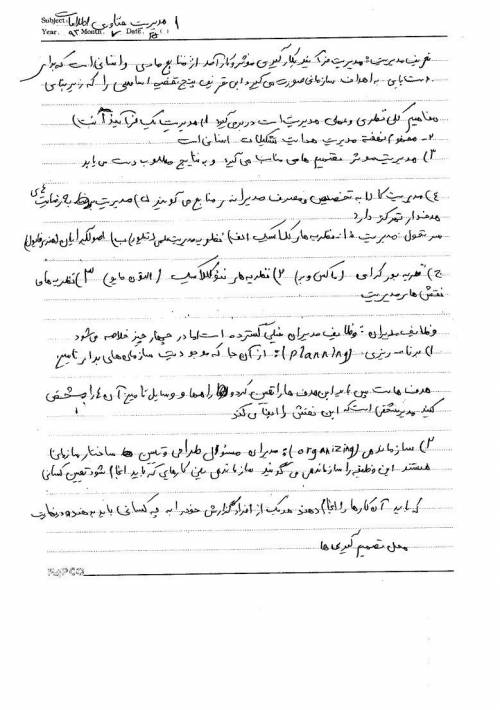 Subject: مدیریت فناوری اطلاعات ۱
Year. ۹۳ Month. ۷ Date. ( )
تعریف مدیریت: مدیریت فرآیند بکارگیری موثر و کارآمد از منابع مادی و انسانی است که برای
دست یابی به اهداف سازمانی صورت می گیرد. این تعریف پنج قضیه اساسی را که زیربنای
مفاهیم کلی نظری و عملی مدیریت است در بر می گیرد ۱) مدیریت یک فرآیند است
۲- مفهوم نهفته مدیریت هدایت تشکیلات انسانی است
۳) مدیریت موثر تصمیم های مناسب می گیرد و به نتایج مطلوب دست می یابد
۴) مدیریت کارا به تخصیص و مصرف مدبرانه بر منابع می گویند ۵) مدیریت بر فعالیت های
هدفدار تمرکز دارد
سیر تحول مدیریت ۱- نظریه های کلاسیک الف) نظریه مدیریت علمی (تیلور) ب) اصولگرایان (هنری فایول)
ج) نظریه بوروکراسی (ماکس وبر) ۲) نظریه های نئوکلاسیک (التون مایو) ۳) نظریه های
نقش های مدیریت
وظایف مدیران: وظایف مدیران خیلی گسترده است اما در چهار چیز خلاصه می شود
۱) برنامه ریزی (planning): از آن جا که موجودیت سازمان های برای تامین
هدف هاست پس باید این هدف ها را تعیین کرده و راهها و وسایل تامین آن را مشخص
کنید مدیریتی است که این نقش را ایفا می کند
۲) سازماندهی (organizing): مدیران مسئول طراحی و تعیین ساختار سازمانی
هستند این وظیفه را سازماندهی می گویند سازماندهی یعنی کارهای که باید انجام شود تعیین کسانی
که باید آن کارها را انجام دهند هر یک از افراد گزارش خود را به چه کسانی باید بدهند و در نهایت
محل تصمیم گیری ها
PAPCO